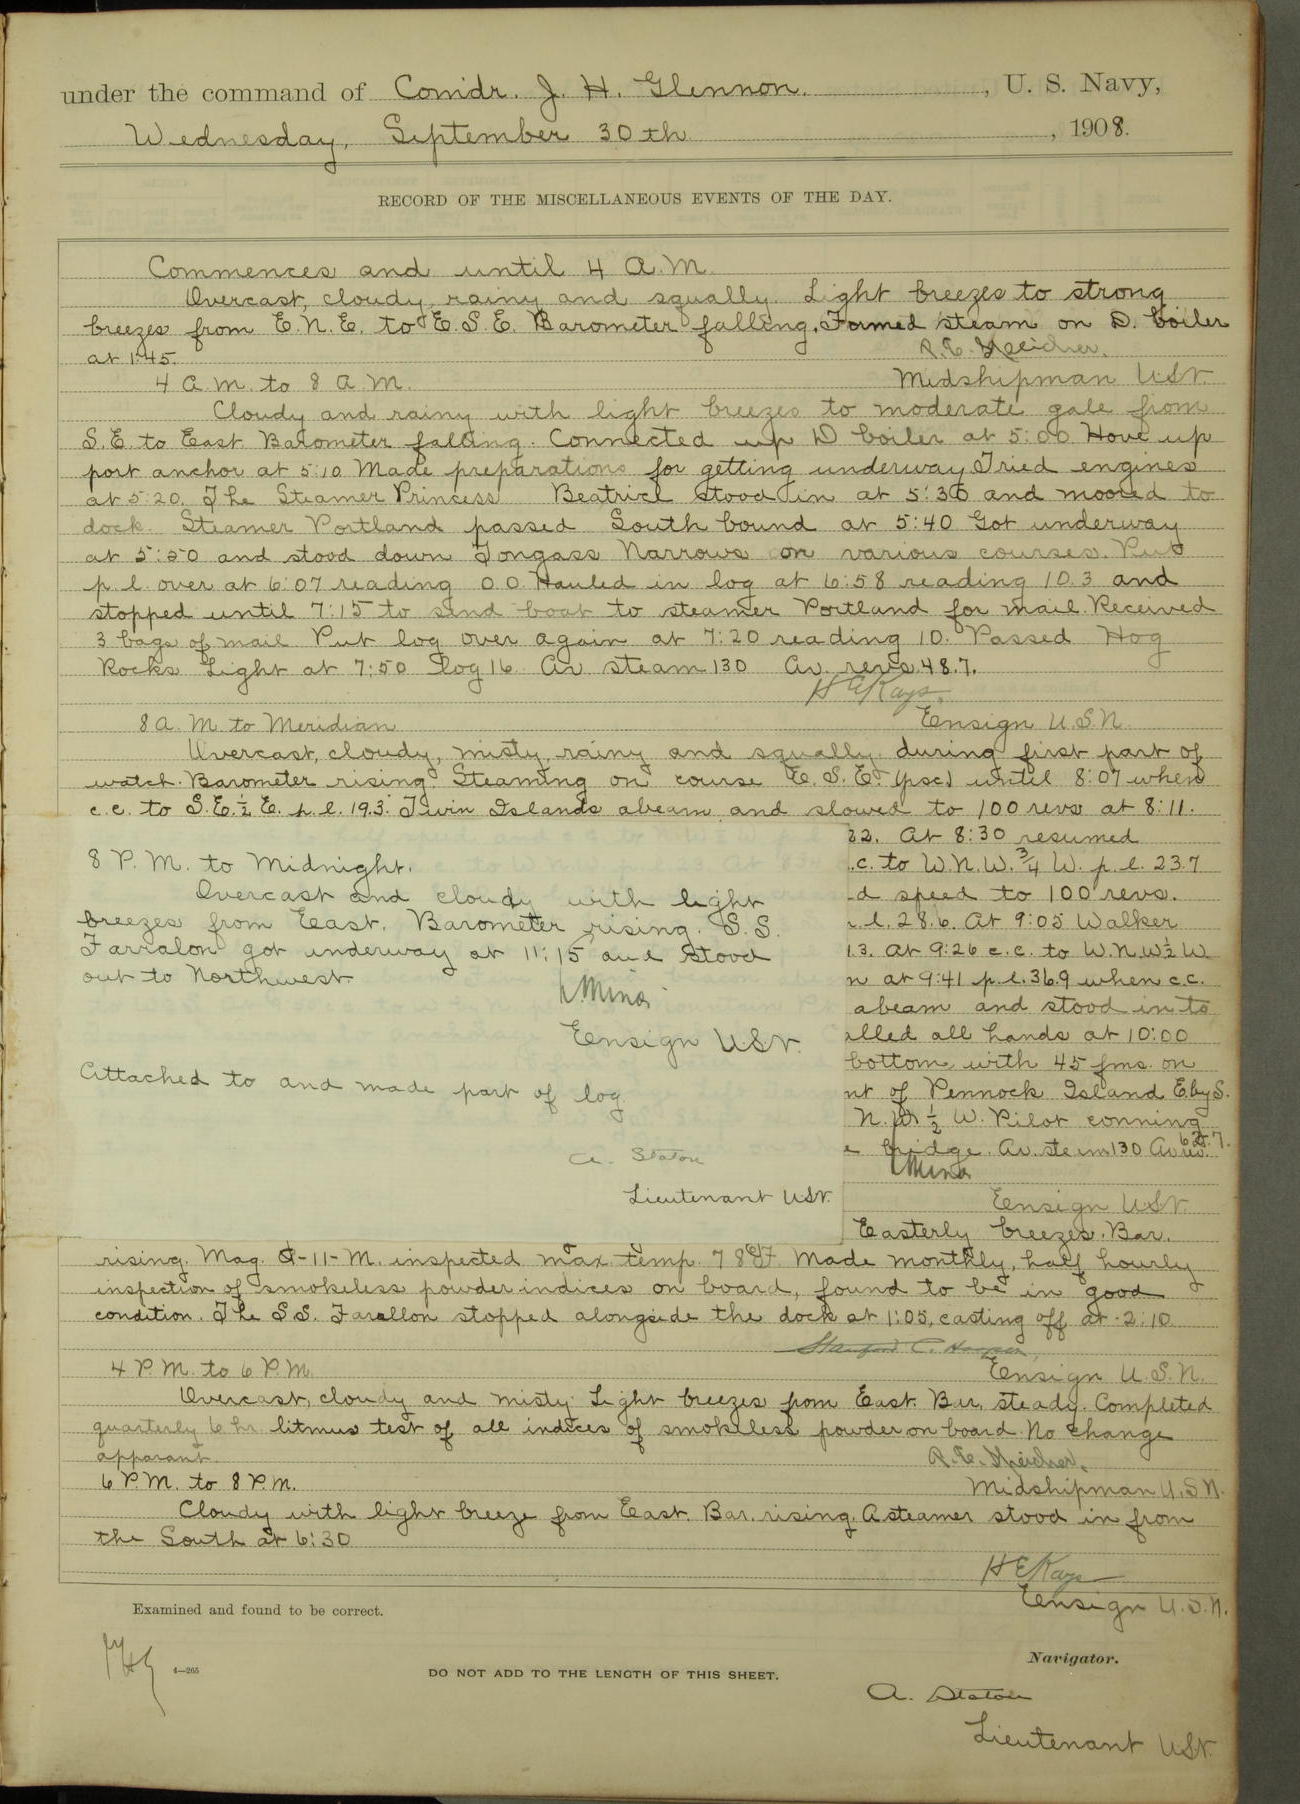 under the command of Comdr. J. H. Glennon. , U. S. Navy,
Wednesday, September 30th , 1908.
RECORD OF THE MISCELLANEOUS EVENTS OF THE DAY.
Commences and until 4 A.M.
Overcast, cloudy, rainy and squally. Light breezes to strong
breezes from E.N.E. to E.S.E. Barometer falling. Formed steam on D. boiler
at 1:45.
4 A.M. to 8 A.M. Midshipman U.S.N.
Cloudy and rainy with light breezes to moderate gale from
S.E. to East. Barometer falling. Connected up D boiler at 5:00 Hove up
port anchor at 5:10 Made preparations for getting underway. Tried engines
at 5:20. The Steamer Princess Beatrice stood in at 5:30 and moored to
dock. Steamer Portland passed South bound at 5:40 Got underway
at 5:50 and stood down Tongass Narrows on various courses. Put
p.l. over at 6:07 reading 0.0. Hauled in log at 6:58 reading 10.3 and
stopped until 7:15 to send boat to steamer Portland for mail. Received
3 bags of mail Put log over again at 7:20 reading 10. Passed Hog
Rocks Light at 7:50 log 16 Av steam 130 Av. revs. 48.7.
H E Kays,
8 A.M. to Meridian Ensign U.S.N.
Overcast, cloudy, misty, rainy and squally during first part of
watch. Barometer rising. Steaming on course E.S.E. (psc) until 8:07 when
c.c. to S.E. ½ E. p.l. 19.3. Twin Islands abeam and slowed to 100 revs at 8:11.
22. At 8:30 resumed
.c. to W.N.W. ¾ W. p.l. 23.7
d speed to 100 revs.
.l. 28.6. At 9:05 Walker
1.3. At 9:26 c.c. to W.N.W ½ W
n at 9:41 p.l. 36.9 when c.c.
abeam and stood in to
alled all hands at 10:00
bottom with 45 fms. on
nt of Pennock Island E.by S.
N.W ½ W. Pilot conning
e bridge. Av. steam 130 Av. rev. 62.7.
Ensign U.S.N.
Easterly breezes. Bar.
8 P.M. to Midnight.
Overcast and cloudy with light
breezes from East. Barometer rising. S.S.
Farralon got underway at 11:15 and stood
out to Northwest.
Ensign U.S.N.
Attached to and made part of log
A. Staton
Lieutenant U.S.N.
rising. Mag. A-11-M. inspected max. temp. 78°F. Made monthly, half hourly
inspection of smokeless powder indices on board, found to be in good
condition. The S.S. Farallon stopped alongside the dock at 1:05, casting off at 2:10
4 P.M. to 6 P.M. Ensign U.S.N.
Overcast, cloudy and misty. Light breezes from East. Bar. steady. Completed
quarterly 6 hr. litmus test of all indices of smokeless powder on board. No change
apparent.
6 P.M. to 8 P.M. Midshipman U.S.N.
Cloudy with light breeze from East. Bar. rising. A steamer stood in from
the South at 6:30
H E Kays
Ensign U.S.N.
Examined and found to be correct.
4—265
DO NOT ADD TO THE LENGTH OF THIS SHEET.
Navigator.
A. Staton
Lieutenant U.S.N.